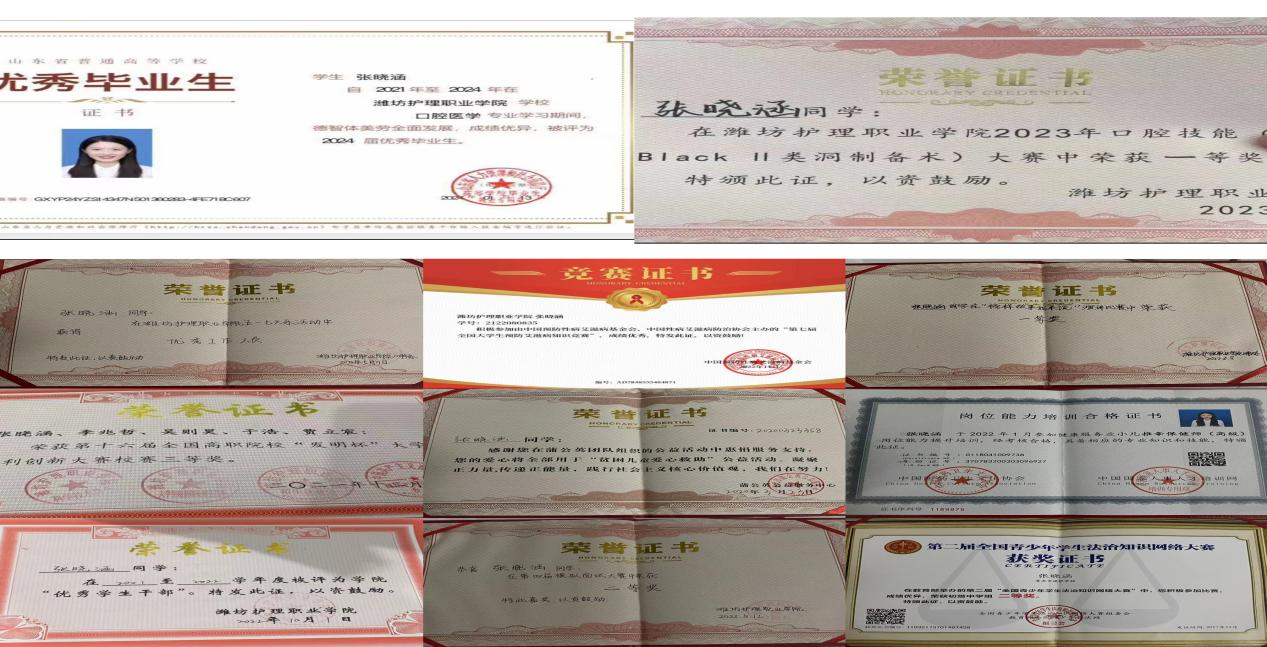 山东省普通高等学校
优秀毕业生
证书
学生 张晓涵
自 2021 年至 2024 年在
潍坊护理职业学院 学校
口腔医学 专业学习期间，
德智体美劳全面发展，成绩优异，被评为
2024 届优秀毕业生。
荣誉证书
HONORARY CREDENTIAL
张晓涵同学：
在潍坊护理职业学院2023年口腔技能
Black II类洞制备术）大赛中荣获一等奖
特颁此证，以资鼓励。
潍坊护理职业
2023
荣誉证书
HONORARY CREDENTIAL
张晓涵 同学：
获得
优秀工作人员
特发此证，以表鼓励
竞赛证书
HONORARY CREDENTIAL
潍坊护理职业学院 张晓涵
学号：2122080835
积极参加由中国预防性病艾滋病基金会、中国性病艾滋病防治协会主办的“第七届
全国大学生预防艾滋病知识竞赛”，成绩优秀，特发此证，以资鼓励！
荣誉证书
HONORARY CREDENTIAL
演讲比赛中荣获
一等奖
荣誉证书
张晓涵、李兆哲、吴则昊、于浩、贾立宸：
荣获第十六届全国高职院校“发明杯”大学
利创新大赛校赛三等奖。
荣誉证书
HONORARY CREDENTIAL
张晓涵 同学：
感谢您在蒲公英团队组织的公益活动中惠捐服务支持，
您的爱心将全部用于“贫困儿童爱心救助”公益活动。凝聚
正力量，传递正能量，践行社会主义核心价值观，我们在努力！
蒲公英公益服务中心
岗位能力培训合格证书
张晓涵 于 2022 年 1 月参加健康服务业小儿推拿保健师（高级）
岗位能力提升培训，经考核合格，具备相应的专业知识和技能，特颁
此证。
证书序列号 1189875
荣誉证书
张晓涵 同学：
在 2021 至 2022 学年度被评为学院
“优秀学生干部”。特发此证，以资鼓励。
潍坊护理职业学院
2022年10月1日
荣誉证书
HONORARY CREDENTIAL
恭喜 张晓涵 同学：
在第四届模拟面试大赛中荣获
二等奖
特此嘉奖，以资鼓励。
潍坊护理职业学院
第二届全国青少年学生法治知识网络大赛
获奖证书
CERTIFICATE
张晓涵
在教育部举办的第二届“全国青少年学生法治知识网络大赛”中，您积极参加比赛，
成绩优异，荣获初中学组 二等奖。
特颁此证，以资鼓励。